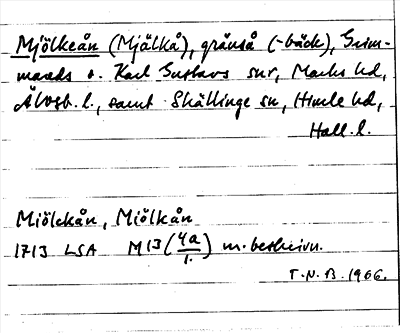 Mjölkeån (Mjälkå), gränså (-bäck), Grim-
mareds o. Karl Gustavs snr, Marks hd,
Älvsb. l., samt Skällinge sn, Himle hd,
Hall. l.
Miölckån, Miölkån
1713 LSA M13 (4a/1.) m. beskrivn.
T.N.B. 1966.